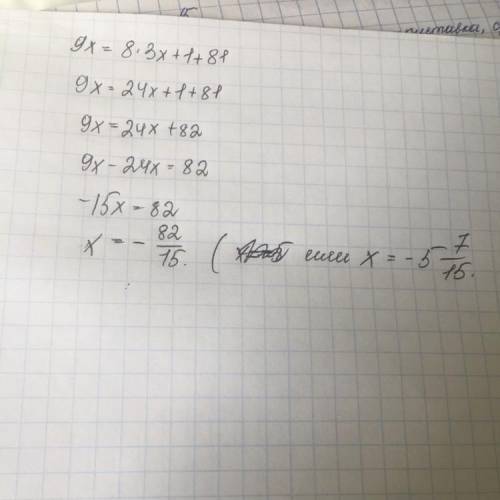 9x = 8·3x+1+81
9x = 24x+1+81
9x = 24x+82
9x - 24x = 82
-15x = 82
x = - 82/15. ( или x = -5 7/15.